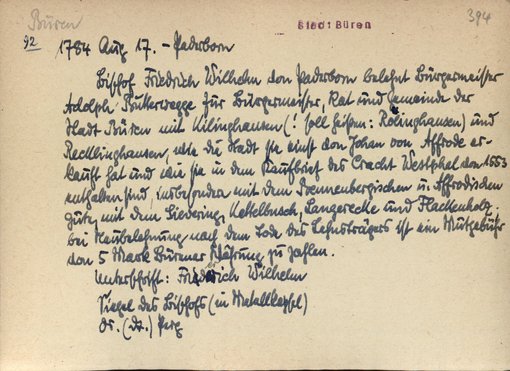 Büren
Stadt Büren
394
92
1784 Aug 17. - Paderborn
Bischof Friedrich Wilhelm von Paderborn belehnt Bürgermeister
Adolph Bütterwegge für Bürgermeister, Rat und Gemeinde der
Stadt Büren mit Kilinghausen (! soll heißen: Rolinghausen) und
Recklinghausen, wie die Stadt sie einst von Johan von Affrode er-
kauft hat und wie sie in dem Kaufbrief des Cracht Westphal von 1553
enthalten sind, insbesondere mit dem Sonnenbergischen u. Affrodischen
Gute, mit dem Siedering, Kettelbusch, Langerecke und Flackenholz.
bei Neubelehnung nach dem Tode des Lehnsträgers ist ein Mutgebühr
von 5 Mark Bürener Währung zu zahlen.
Unterschrift: Friedrich Wilhelm
Siegel des Bischofs (in Metallkapsel)
Or. (dt.) Perg